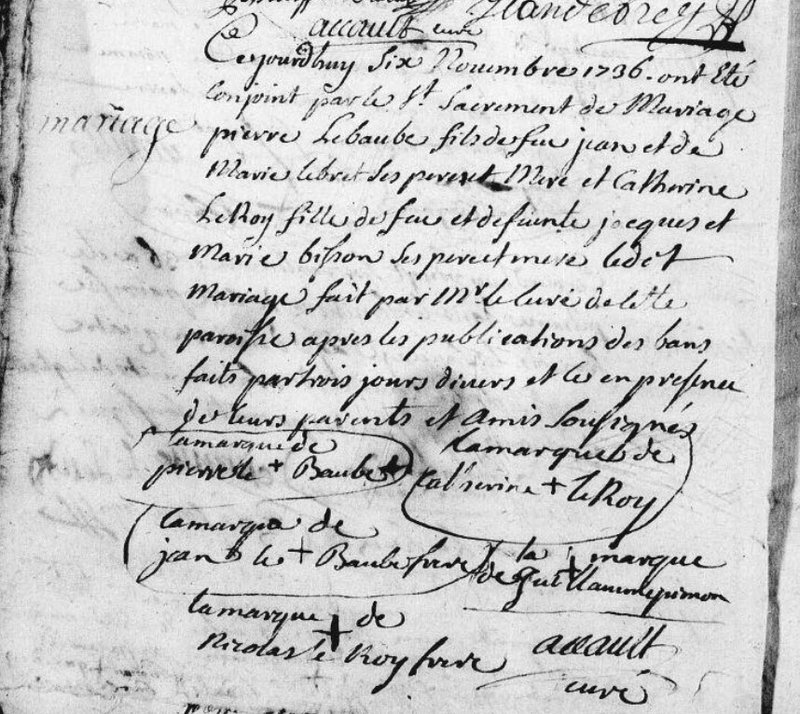 accault curé
Ce jourdhuy six Novembre 1736. ont Eté
Conjoint par le St. Sacrement de Mariage
mariage
pierre Lebaube fils de feu jean et de
Marie lebret ses pere et Mere et Catherine
LeRoy fille de feu et defiunte jacques et
Marie bisson ses pere et mere ledet
Mariage fait par Mr. le Curé de lete
paroisse apres les publications des bans
faits par trois jours divers et ce en presence
de leurs parents et Amis Sousignés
la marque de
pierre le + Baube +
la marque de
Catherine + le Roy
la marque de
jean le + Baube frere
la + marque
de Guillaume pimon
la marque de
Nicolas le + Roy frere
accault
curé